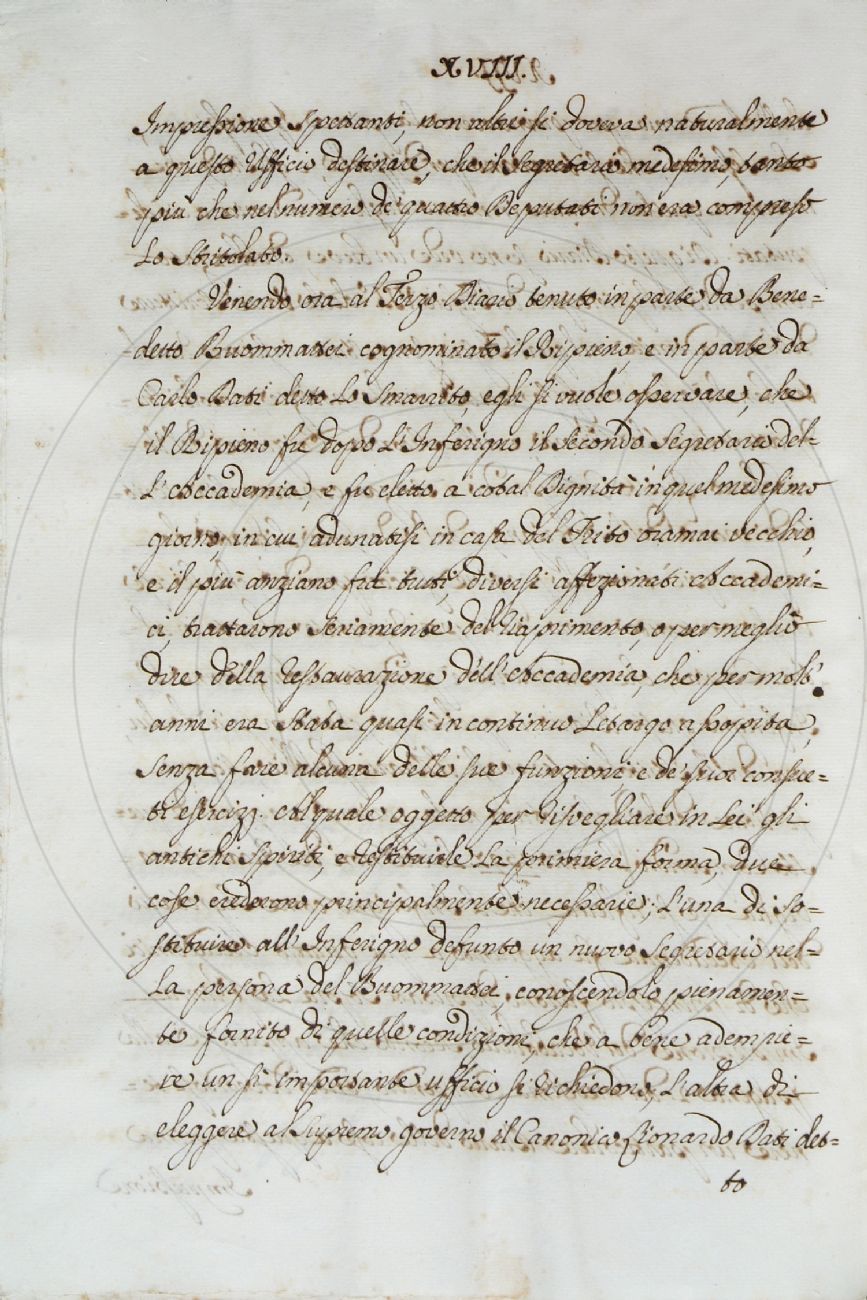 XVIII.
Impressione spettanti, non altri si doveva naturalmente
a questo Ufficio destinare, che il Segretario medesimo, tanto
più che nel numero de' quattro Deputati non era compreso
Lo Stritolato.
Venendo ora al Terzo Diario tenuto in parte da Bene=
detto Buommattei cognominato il Ripieno, e in parte da
Carlo Dati detto Lo Smarrito, egli si vuole osservare, che
il Ripieno fu dopo L'Inferigno il Secondo Segretario del=
L'Accademia, e fu eletto a cotal Dignità in quel medesimo
giorno, in cui adunatisi in casa del Trito oramai vecchio,
e il più anziano fra tutti, diversi affezionati Accademi=
ci, trattarono seriamente del Riaprimento, o per meglio
dire della Restaurazione dell'Accademia, che per molt'
anni era stata quasi in continuo Letargo assopita,
senza fare alcuna delle sue funzioni, e de' suoi consue=
ti esercizj. Al quale oggetto per risvegliare in Lei gli
antichi Spiriti, e restituirle La primiera forma, due
cose crederono principalmente necessarie; L'una di so=
stituire all'Inferigno defunto un nuovo Segretario nel=
La persona del Buommattei, conoscendolo pienamen=
te fornito di quelle condizioni, che a bene adempie=
re un sì importante ufficio si richiedono; L'altra di
eleggere al Supremo governo il Canonico Lionardo Dati det=
to